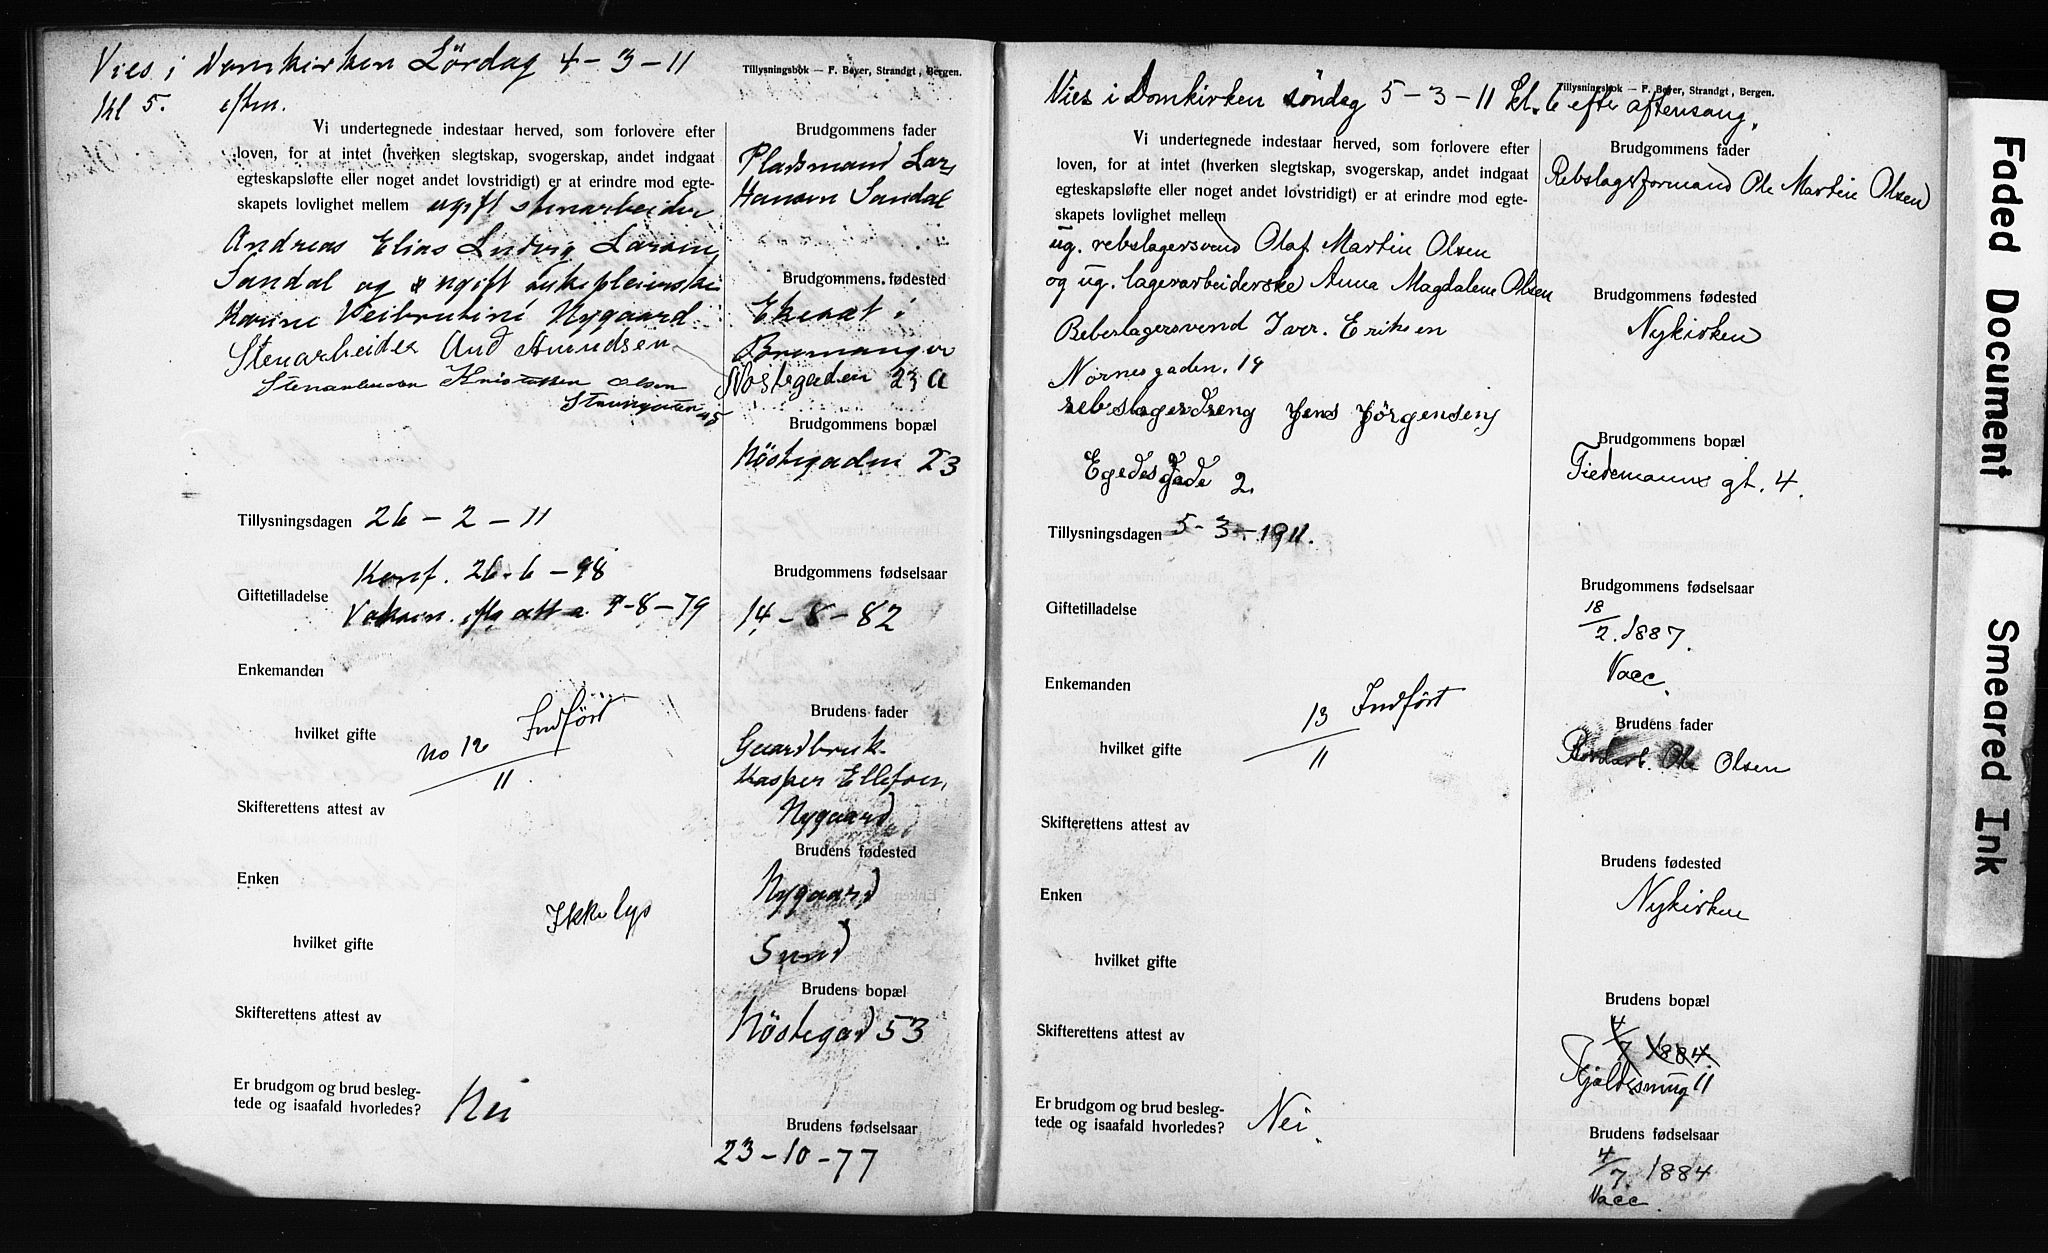 Vies i Domkirken Lördag 4-3-11
Kl 5. eftm.
Tillysningsbok — F. Beyer, Strandgt, Bergen.
Vi undertegnede indestaar herved, som forlovere efter
loven, for at intet (hverken slegtskap, svogerskap, andet indgaat
egteskapsløfte eller noget andet lovstridigt) er at erindre mod egte-
skapets lovlighet mellem ugift stenarbeider
Andreas Elias Ludvig Larsen
Sandal og ugift
Nygaard
Stenarbeider And Amundsen
Nostegaden 23 a
Stenarbeider Olsen
45
Tillysningsdagen 26-2-11
Konf. 26-6-98
Giftetilladelse
Vaksin. iflg att a 9-8-79
Enkemanden
Indført
hvilket gifte
no 12
11
Skifterettens attest av
Enken
Ikke lys
hvilket gifte
Skifterettens attest av
Er brudgom og brud besleg-
tede og isaafald hvorledes? Nei
Brudgommens fader
Pladsmand Lars
Hansen Sandal
Brudgommens fødested
i
Bremanger
Brudgommens bopæl
Nöstegaden 23
Brudgommens fødselsaar
14-8-82
Brudens fader
Gaardbruk.
Kasper Ellefsen
Nygaard
Brudens fødested
Nygaard
Sund
Brudens bopæl
Nöstegad 53
Brudens fødselsaar
23-10-77
Vies i Domkirken söndag 5-3-11 kl. 6 efter aftensang.
Tillysningsbok — F. Beyer, Strandgt, Bergen.
Vi undertegnede indestaar herved, som forlovere efter
loven, for at intet (hverken slegtskap, svogerskap, andet indgaat
egteskapsløfte eller noget andet lovstridigt) er at erindre mod egte-
skapets lovlighet mellem
ug. rebslagersvend Olaf Martin Olsen
og ug. lagerarbeiderske Anna Magdalene Olsen
Rebeslagersvend Iver. Eriksen
Nornesgaden. 14
rebslagerdreng Jens Jørgensen
Egedes gade 2.
Tillysningsdagen 5-3-1911.
Giftetilladelse
Enkemanden
13 Indført
hvilket gifte
11
Skifterettens attest av
Enken
hvilket gifte
Skifterettens attest av
Er brudgom og brud besleg-
tede og isaafald hvorledes? Nei.
Brudgommens fader
Rebslagerformand Ole Martin Olsen
Brudgommens fødested
Nykirken
Brudgommens bopæl
Tiedemanns gt. 4.
Brudgommens fødselsaar
18/2. 1887.
Vacc.
Brudens fader
Ole Olsen
Brudens fødested
Nykirken
Brudens bopæl
4/7 1884.
11
Brudens fødselsaar
4/7. 1884
Vacc.
Faded Document
Smeared Ink